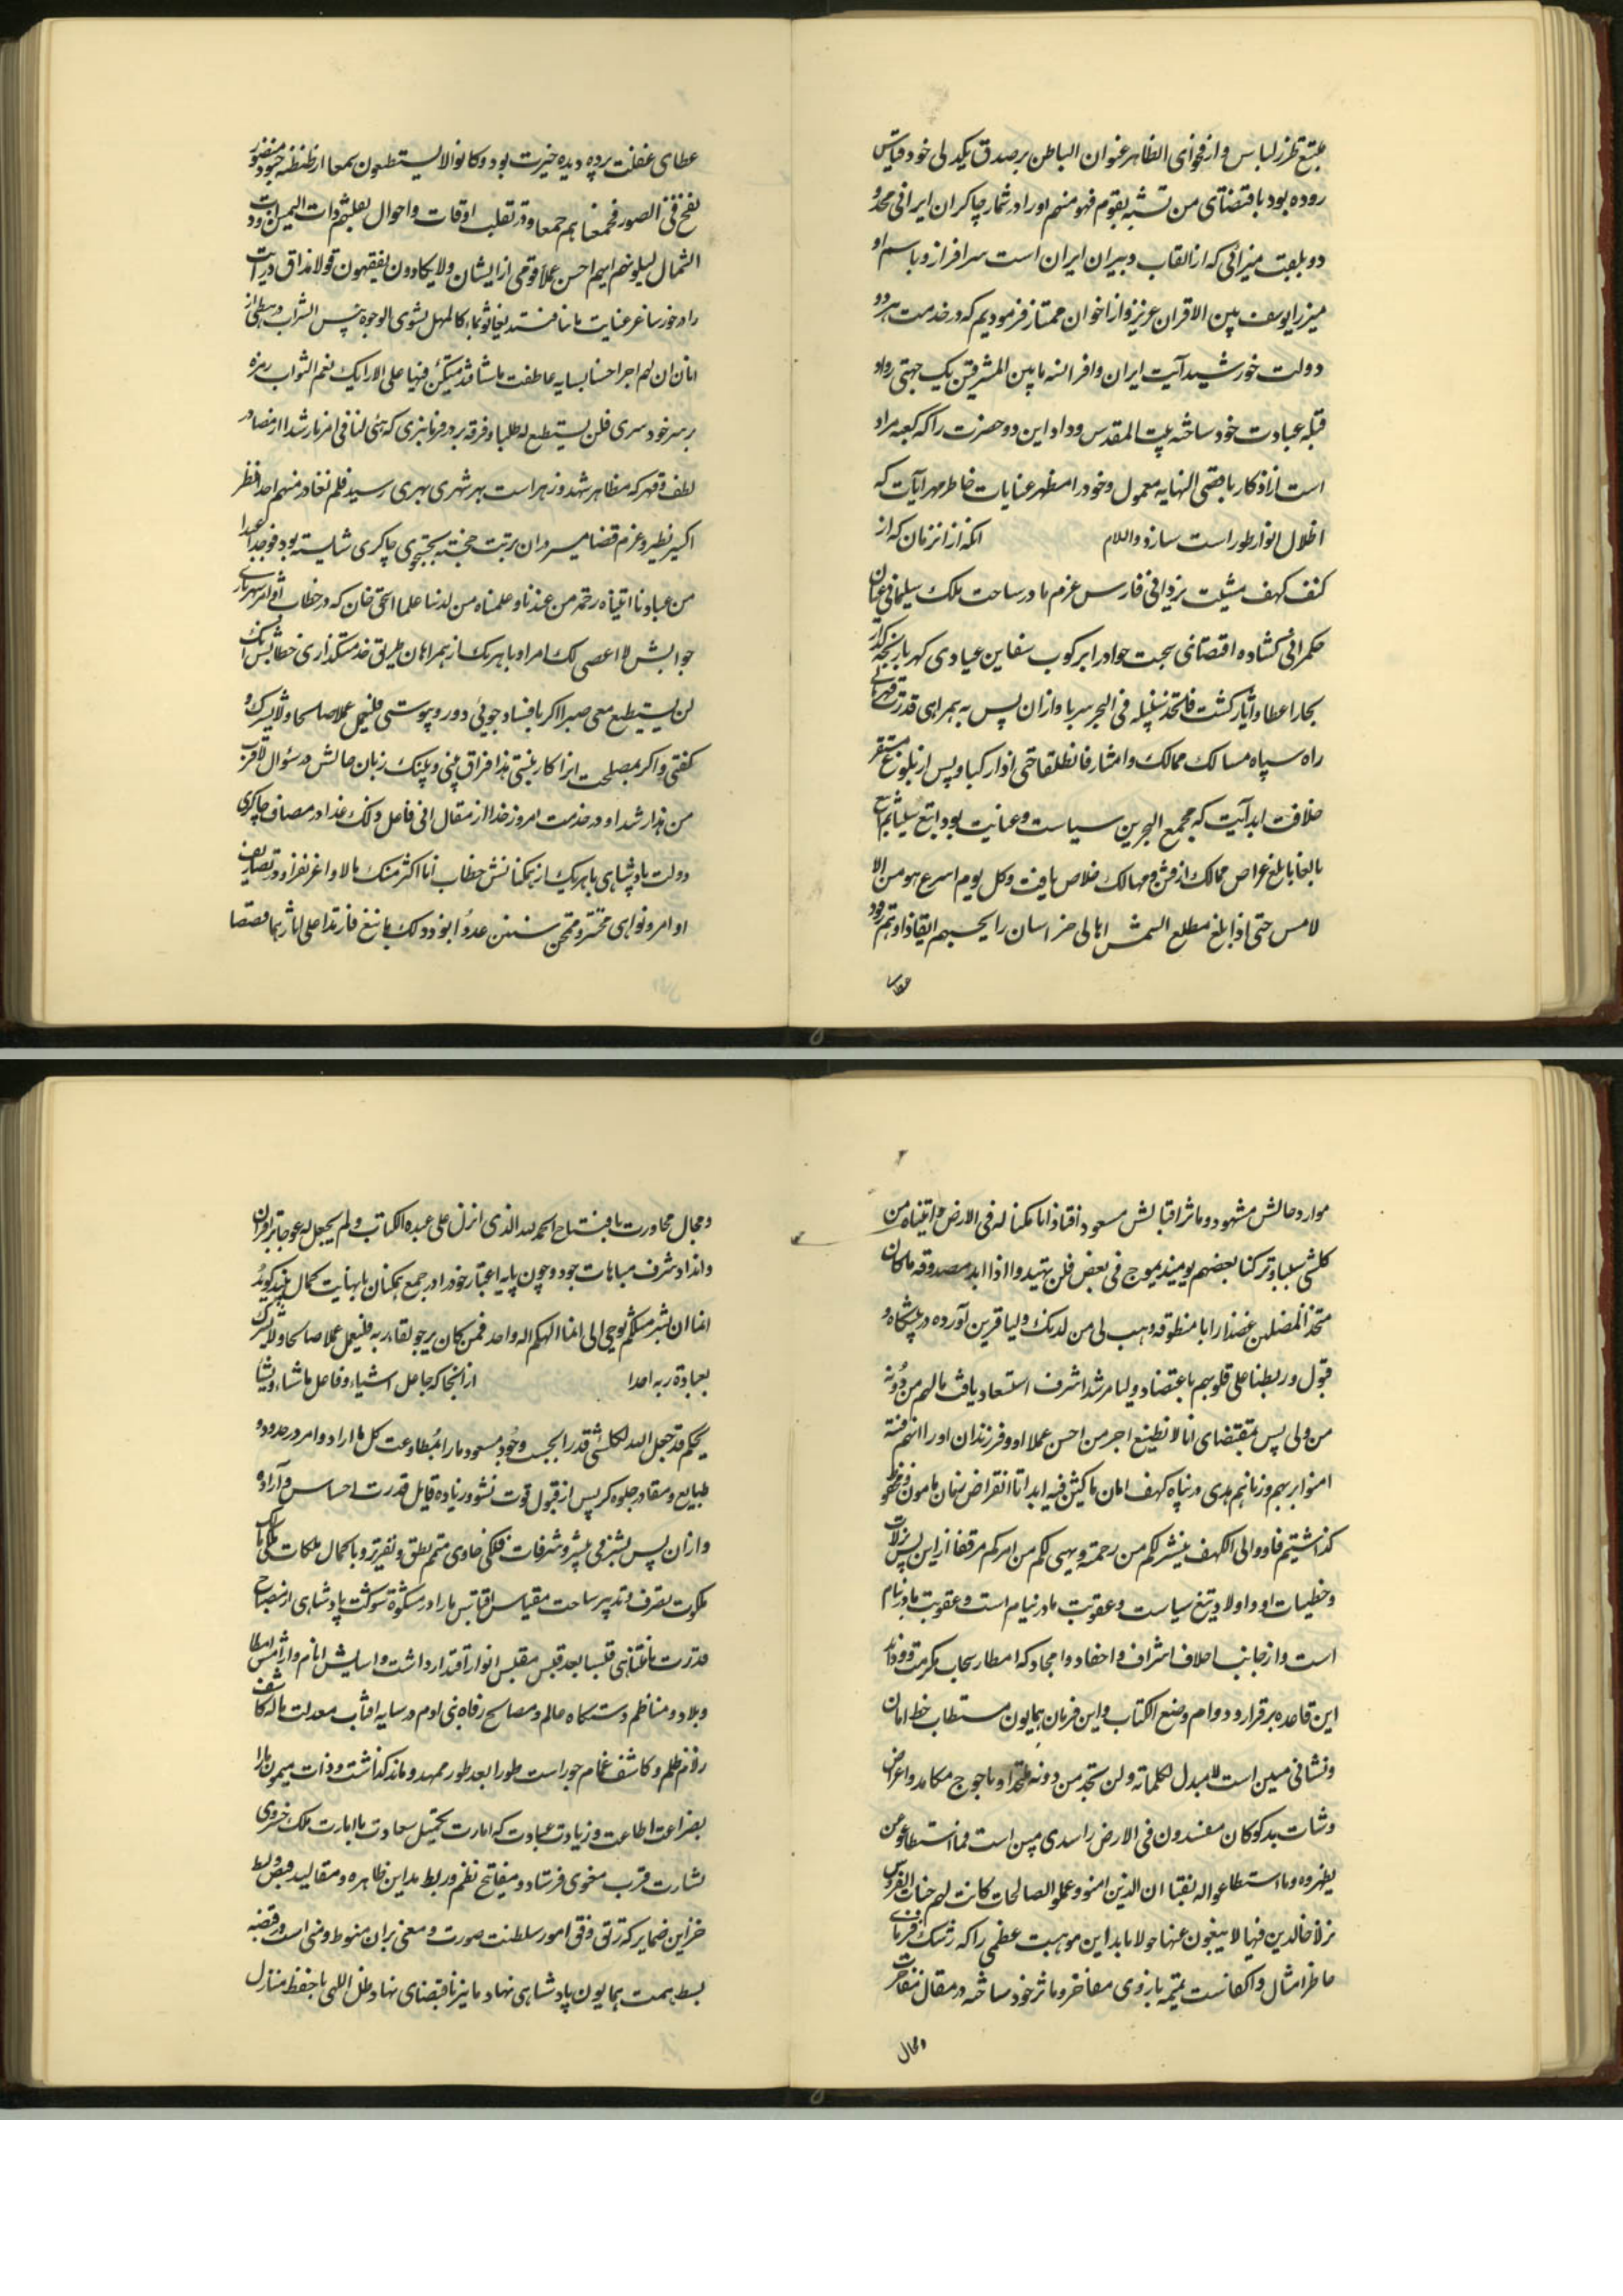 عبتع طرز لباس و از فحوای الظاهر عنوان الباطن بر صدق یکدلی خود قیاس
روده بود باقتضای من تشبه بقوم فهو منهم او را در شمار چاکران ایرانی محدود
دو بلقب میرزائی که از القاب دبیران ایران است سرافراز و باسم او
میرزا یوسف بین الاقران عزیز و از اخوان ممتاز فرمودیم که در خدمت هر دو
دولت خورشید آیت ایران و افرانسه ما بین المشرقین یک جهتی رواد
قبله عبادت خود ساخته بیت المقدس وداد این دو حضرت را که کعبه مراد
است از اذکار باقصی النهایه معمول و خود را مظهر عنایات خاطر مهر آیات که
اظلال انوار طور است سازد والسلام انکه از انزمان که از
کنف کهف مشیت یزدانی فارس عزم ما در ساحت ملک سلیمانی عنان
حکمرانی گشاده اقتضای بخت جواد را برکوب سفاین عیادی کهربار
بحار اعطا و ایثار گشت فاتخذ سبیله فی البحر سربا و از ان پس به همراهی قدرت
راه سپاه مسالک ممالک و امشار فانطلقا حتی اذا رکبا و پس از بلوغ مستقر
خلافت ابد آیت که مجمع البحرین سیاست و عنایت بود اتبع سببا ثم اتبع
بالغا ما بلغ عراص ممالک از فتن و مهالک خلاص یافت و کل یوم اسرع هو من الا
لامس حتی اذا بلغ مطلع الشمس اهالی خراسان را یحسبهم ایقاظا و هم رقود
عطای
عطای غفلت پرده دیده خیرت بود و کانوا لا یستطیعون سمعا از طنطنه جنود منصور
نفخ فی الصور فجمعنا هم جمعا و در تقلب اوقات و احوال نقلبهم ذات الیمین و ذات
الشمال لیبلوهم ایهم احسن عملا قومی از ایشان ولا یکادون یفقهون قولا مذاق درایت
را در خور ساغر عنایت ما نیافتند یغاثوا بماء کالمهل یشوی الوجوه بئس الشراب و رهطی از
انان ان لهم اجرا حسنا بسایه عاطفت ما شتافتند متکئین فیها علی الارائک نعم الثواب زمره
بر سر خود سری فلن یستطیع له طلبا و فرقه بر در فرمانبری که هیئ لنا فی امرنا رشدا از مصادر
لطف و قهر که مظاهر شهد و زهر است بهر شهری بهری رسید فلم نغادر منهم احد افظر
اکسیر نظیر و عزم قضا مسیر مان برتبت خجسته بجستجوی چاکری شایسته بود فوجدا عبدا
من عبادنا اتیناه رحمة من عندنا و علمناه من لدنا علما اسحق خان که در خطاب اوامر شهریاری
جوابش لا اعصی لک امرا و با هر یک از همراهان طریق خدمتگذاری خطابش انک
لن یستطیع معی صبرا اگر با فساد جوئی دور و پیوستی فلیعمل عملا صالحا و لا یشرک
گفتی و اگر بمصلحت انرا کار بستی هذا فراق بینی و بینک زبان حالش در سؤال لاقرب
من هذا رشدا و در خدمت امروز فردا از مقال انی فاعل ذلک غدا در مصاف چاکری
دولت پادشاهی با هر یک از همکنانش خطاب انا اکثر منک مالا و اعز نفرا و در تصاریف
اوامر و نواهی مختبر و ممتحن سنین عددا بودو ذلک ما نبغ فارتدا علی اثارهما قصصا
موارد حالش مشهود و ماثر اقبالش مسعود افتاد انا مکنا له فی الارض و اتیناه من
کل شئ سببا و ترکنا بعضهم یومئذ یموج فی بعض فلن یهتدوا اذا ابدا مصدوقه ما کان
متخذ المضلین عضدا را با منطوقه وهب لی من لدنک ولیا قرین آورده در پیشگاه
قبول و ربطنا علی قلوبهم باعتضاد ولیا مرشدا شرف استسعاد یافت ما لهم من دونه
من ولی پس بمقتضای انا لا نضیع اجر من احسن عملا او و فرزندان او را انهم فتیة
امنوا بربهم و زدناهم هدی در پناه کهف امان ماکثین فیه ابدا تا انقراض زمان مامون و محفوظ
گذاشتیم فاووا الی الکهف ینشر لکم من رحمته و یهیئ لکم من امرکم مرفقا از این پس زلات
و خطیئات او و اولاد تیغ سیاست و عقوبت ما در نیام است و عقوبت ما در نیام
است و از جانب اخلاف اشراف و احفاد و امجاد که امطار سحاب مکرمت
این قاعده برقرار و دوام وضع الکتاب و این فرمان همایون مستطاب خط امان
و نشانی مبین است لا مبدل لکلماته ولن تجد من دونه ملتحدا و یاجوج مکاید و اغراض
وشات بدگو کان مفسدون فی الارض را سدی مبین است فما اسطاعوا ان
یظهروه و ما استطاعوا له نقبا ان الذین امنو و عملو الصالحات کانت لهم جنات الفردوس
نزلا خالدین فیها لا یبغون عنها حولا باید این موهبت عظمی را که رشک فرمای
خاطر امثال و اکفاست تمیمه بازوی مفاخر و ماثر خود ساخته در مقال مفاخرت
و مجال
و مجال محاورت بافتتاح الحمد لله الذی انزل علی عبده الکتاب ولم یجعل له عوجا بر اقران
و انداد شرف مباهات جود و چون پایه اعتبار خود را در جمع همکنان بنهایت کمال بیند گوید
انما انا بشر مثلکم یوحی الی انما الهکم اله واحد فمن کان یرجو لقاء ربه فلیعمل عملا صالحا ولا یشرک
بعبادة ربه احدا از انجا که جاعل اشیاء و فاعل ما شاء و یشا
بحکم قد جعل الله لکل شئ قدرا بحسب وجود مسعود ما را بمطاوعت کل ما اراد و امر در حدود
طبایع و مقادر جلوه گر پس از قبول قوت نشو و زیاده قابل قدرت احساس و اراده
و از ان پس بشیر فی بشر و شرفات فلکی حاوی متمم نطق و تقریر و با کمال ملکات ملکی مالک
ملکوت تصرف و تدبیر ساحت مقیاس اقتباس ما را در مشکوة شوکت پادشاهی از مصباح
قدرت نامتناهی قبسا بعد قبس مقتبس انوار اقتدار داشت و اسایش انام و ارامش امطا
و بلاد و مناظم دستگاه عالم و مصالح رفاه بنی ادم در سایه افتاب معدلت ما که کاشف
رافع ظلم و کاشف غمام جور است طورا بعد طور ممهد و ماند گذاشت و ذات میمون ما را
بضراعت اطاعت و زیادت عبادت که امارت تحصیل سعادت با امارت ملک خسروی
بشارت قرب معنوی فرستاد و مفاتیح نظم و ربط مداین ظاهره و مقالید قبض و بسط
خزاین ضمایر که رتق و فتق امور سلطنت صورت و معنی بر ان منوط و مبنی است در قبضه
بسط همت همایون پادشاهی نهاد ما نیز باقتضای نهاد ظل اللهی با حفظ منازل